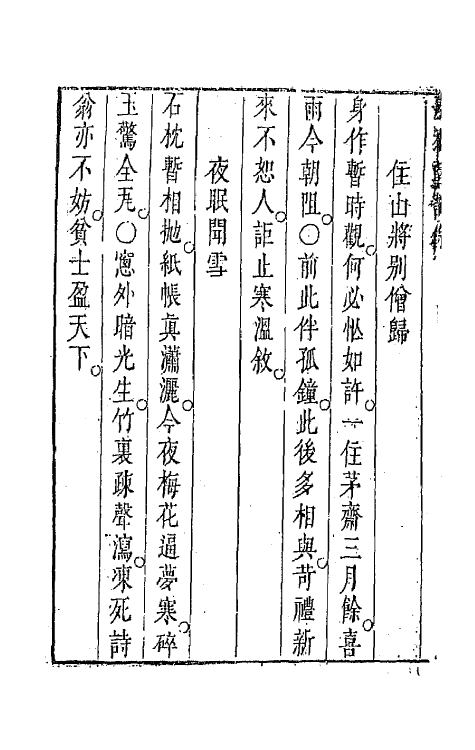 住山將别僧歸
身作暫時觀何必怭如許一住茅齋三月餘喜
雨今朝阻〇前此伴孤鐘此後多相與苛禮新
來不恕人詎止寒溫敘
夜眠聞雪
石枕暫相抛紙帳真瀟灑今夜梅花逼夢寒碎
玉驚全瓦〇窻外暗光生竹裏疎聲瀉凍死詩
翁亦不妨貧士盈天下